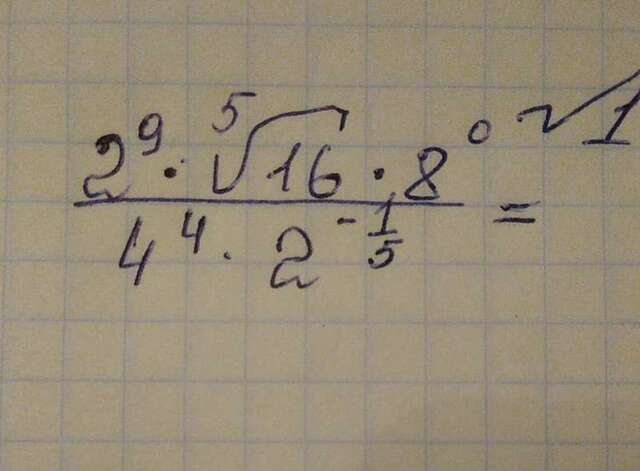 2⁹ · ⁵√16 · 8⁰ · √1
4⁴ · 2^(-1/5) =